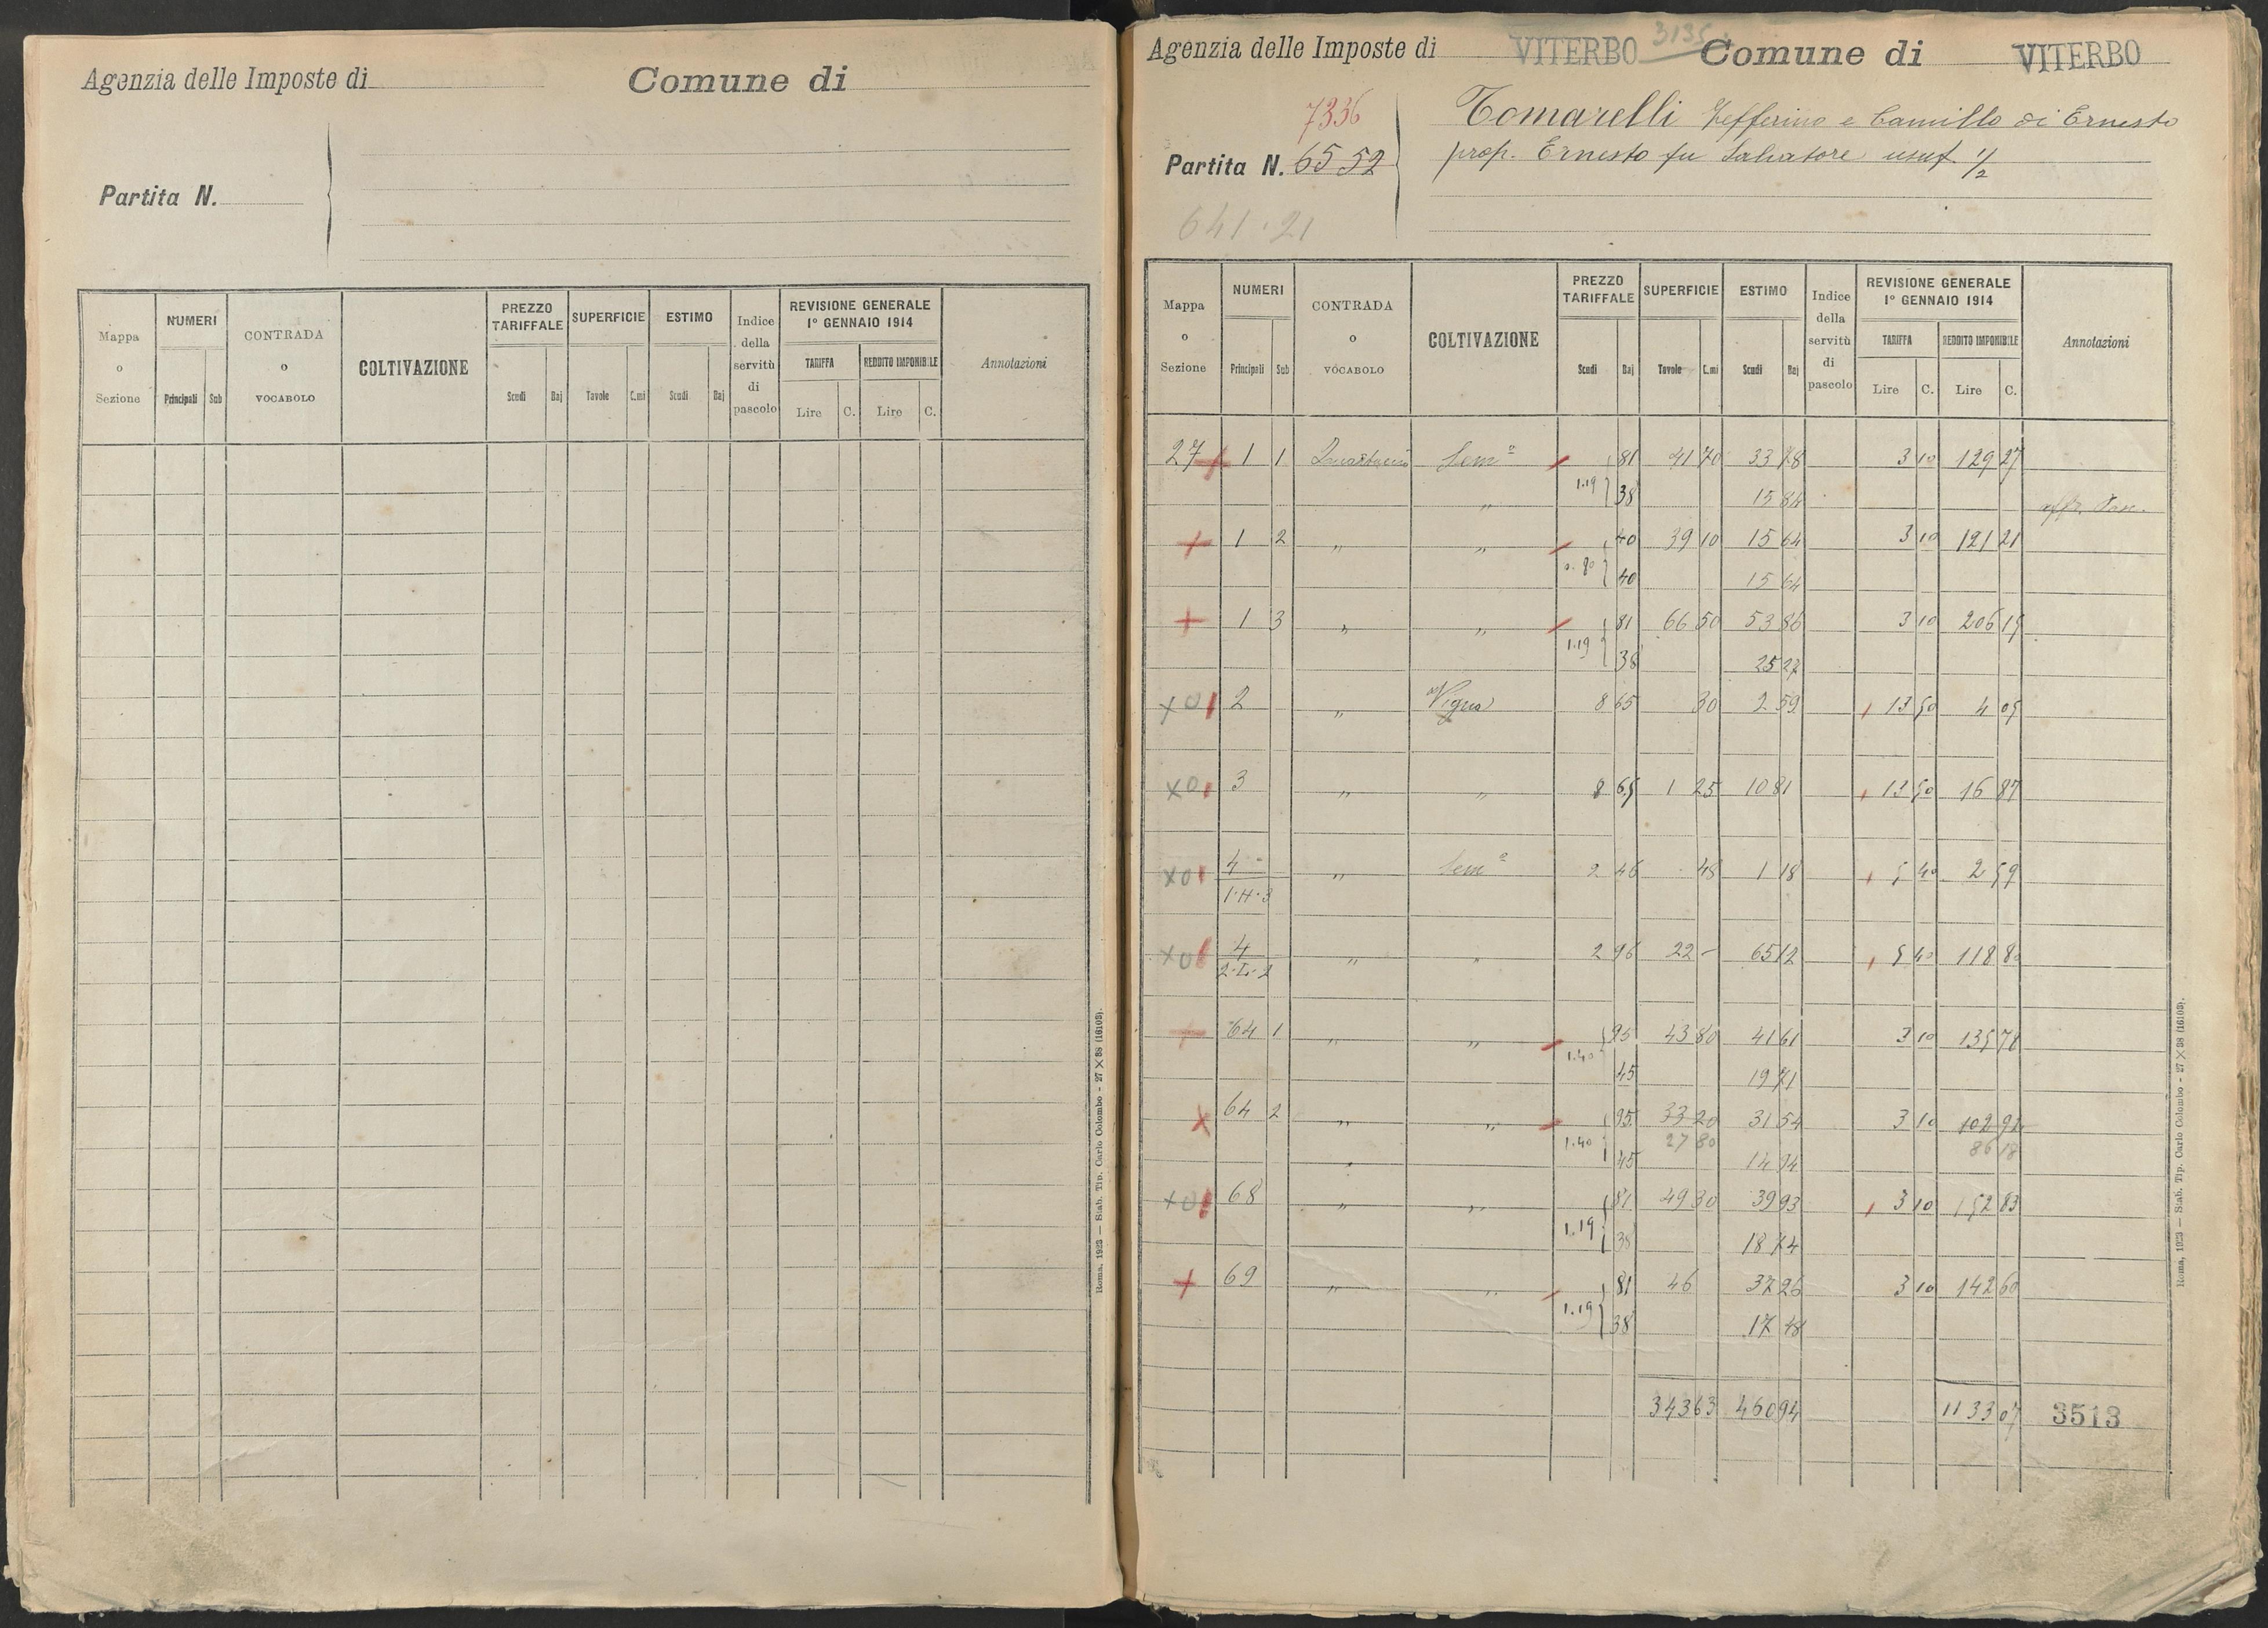 Agenzia delle Imposte di Comune di
Partita N.
Mappa o Sezione NUMERI Principali Sub CONTRADA o VOCABOLO COLTIVAZIONE PREZZO TARIFFALE Scudi Baj SUPERFICIE Tavole C.mi ESTIMO Scudi Baj Indice della servitù di pascolo REVISIONE GENERALE 1° GENNAIO 1914 TARIFFA Lire C. REDDITO IMPONIBILE Lire C. Annotazioni
Roma, 1923 — Stab. Tip. Carlo Colombo - 27 X 38 (16103).
3135
Agenzia delle Imposte di VITERBO Comune di VITERBO
7336
Tomarelli Zefferino e Camillo di Ernesto
Partita N. 6552 prop. Ernesto fu Salvatore usuf. 1/2
641.21
Mappa o Sezione NUMERI Principali Sub CONTRADA o VOCABOLO COLTIVAZIONE PREZZO TARIFFALE Scudi Baj SUPERFICIE Tavole C.mi ESTIMO Scudi Baj Indice della servitù di pascolo REVISIONE GENERALE 1° GENNAIO 1914 TARIFFA Lire C. REDDITO IMPONIBILE Lire C. Annotazioni
27 + 1 1 Sem° 81 41 70 33 78 3 10 129 27
1.19 38 „ 15 84
+ 1 2 „ „ 40 39 10 15 64 3 10 121 21
0.80 40 15 64
+ 1 3 „ „ 81 66 50 53 86 3 10 206 15
1.19 38 25 27
x 0 2 „ Vigna 8 65 30 2 59 13 50 4 05
x 0 3 „ „ 8 65 1 25 10 81 13 50 16 87
x 0 4 „ Sem° 2 46 48 1 18 5 40 2 59
1.H.3
x 0 4 „ „ 2 96 22 - 65 12 5 40 118 80
2.I.2
+ 64 1 „ „ 95 43 80 41 61 3 10 135 78
1.40 45 19 71
x 64 2 „ „ 95 33 20 31 54 3 10 102 92
1.40 45 27 80 14 94 86 18
x 0 68 „ „ 81 49 30 39 93 3 10 152 83
1.19 38 18 74
+ 69 „ „ 81 46 37 26 3 10 142 60
1.19 38 17 48
343 63 460 94 1133 07 3513
Roma, 1923 — Stab. Tip. Carlo Colombo - 27 X 38 (16103).